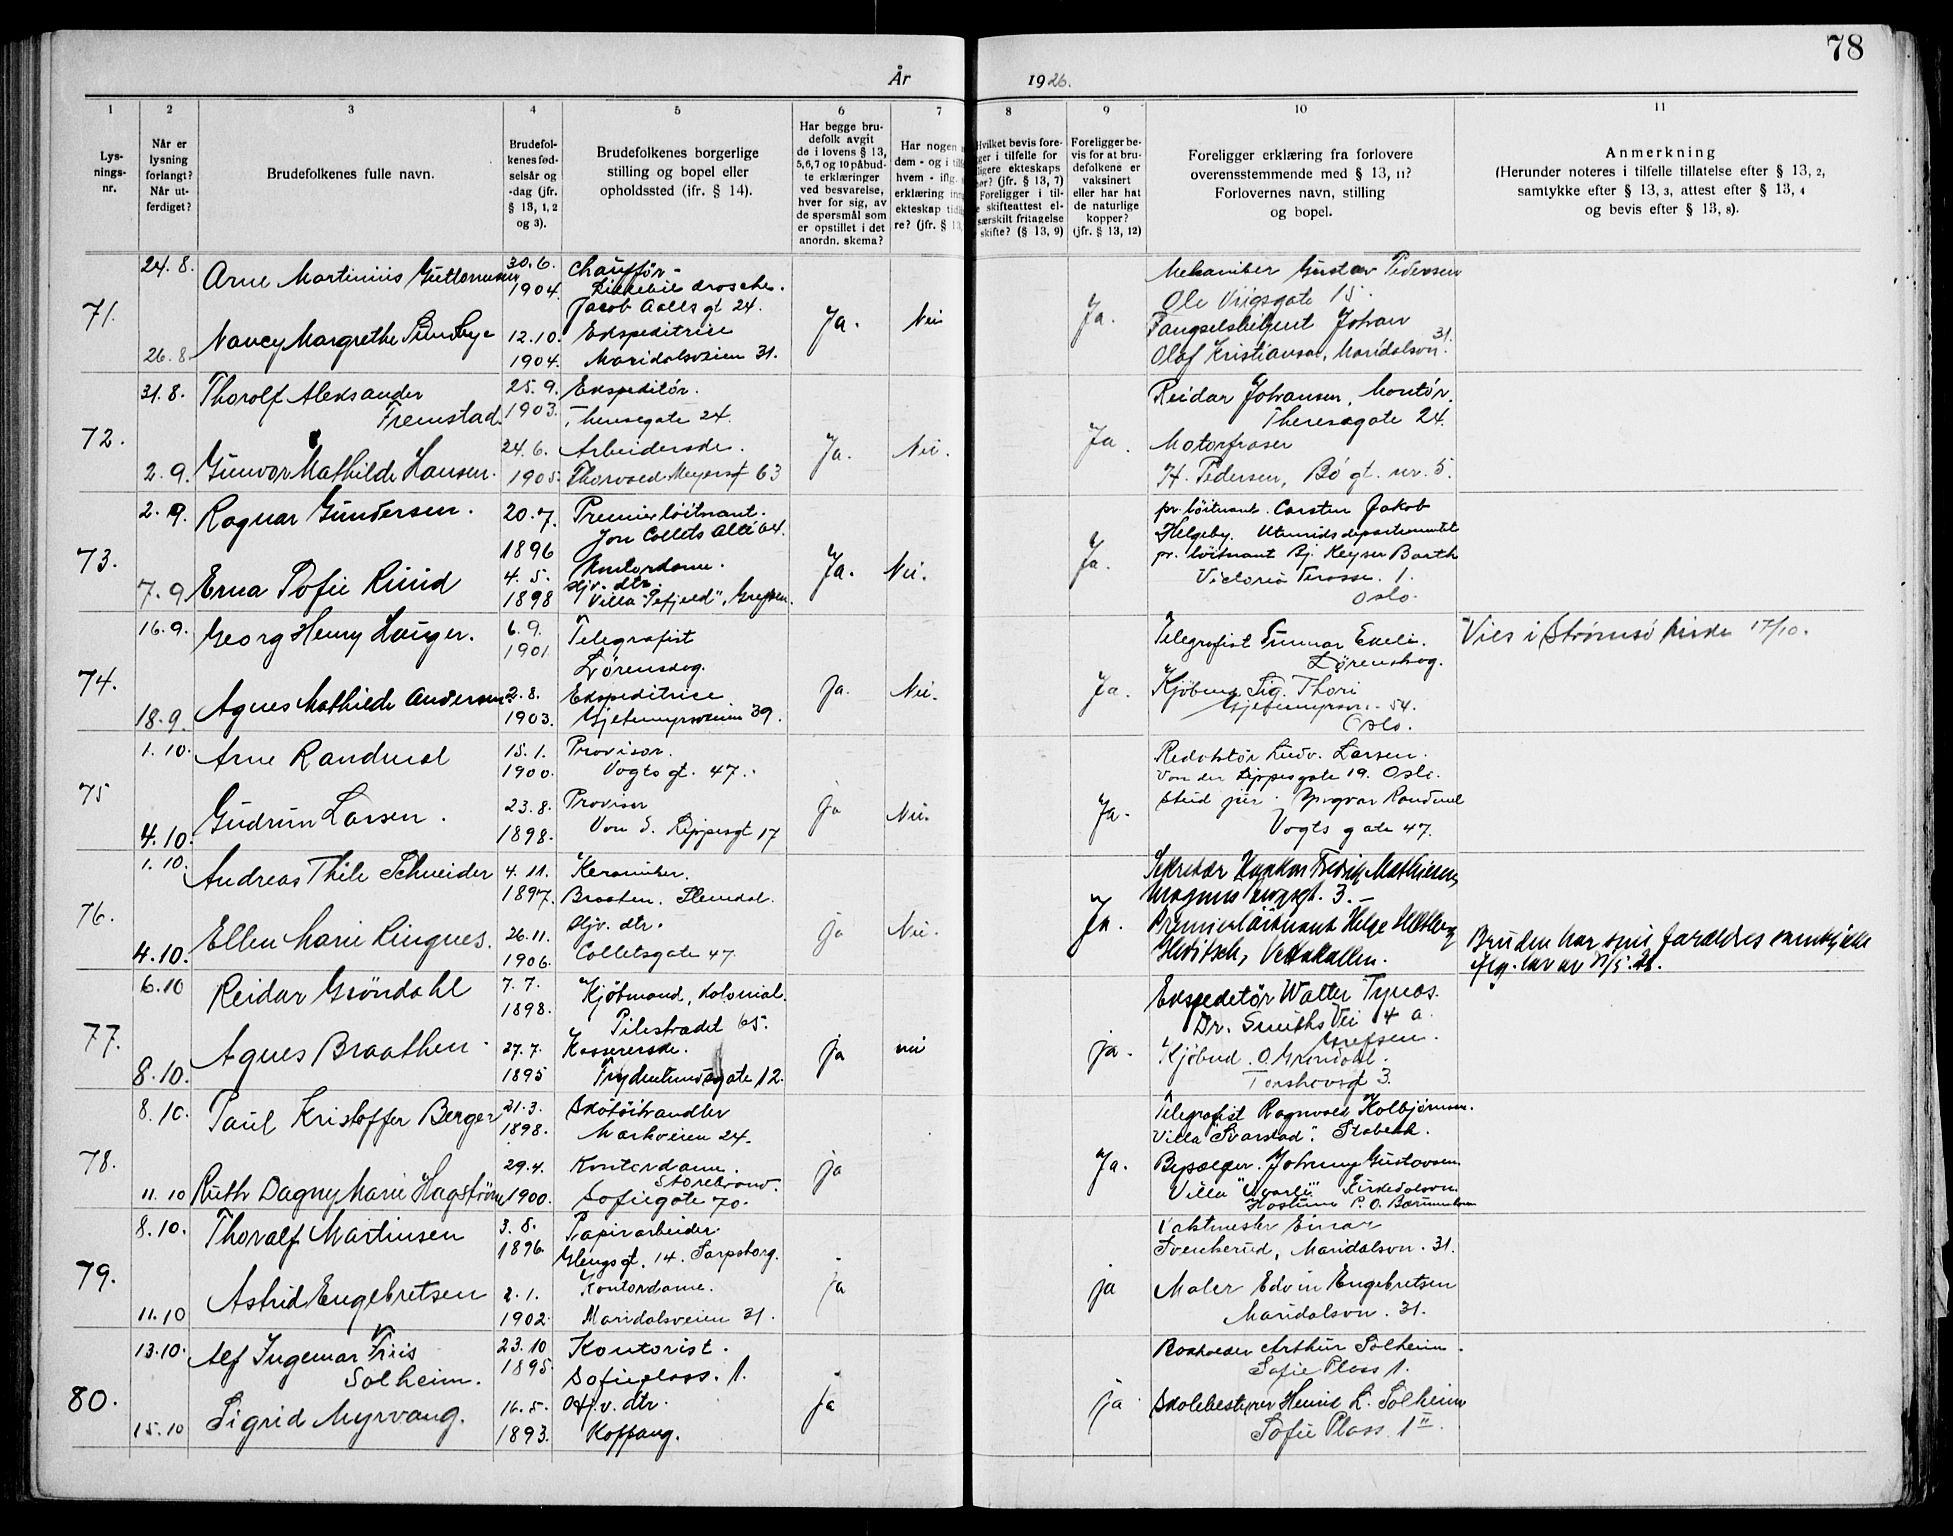 78
År 1926.
1 2 3 4 5 6 7 8 9 10 11
Lys-
nings-
nr.
Når er
lysning
forlangt?
Når ut-
ferdiget?
Brudefolkenes fulle navn.
Brudefol-
kenes fød-
selsår og
-dag (jfr.
§ 13, 1, 2
og 3).
Brudefolkenes borgerlige
stilling og bopel eller
opholdssted (jfr. § 14).
Har begge bru-
defolk avgit
de i lovens § 13,
5, 6, 7 og 10 påbud-
te erklæringer
ved besvarelse,
hver for sig, av
de spørsmål som
er opstillet i det
anordn. skema?
Har nogen
dem - og i
hvem - iflg.
erklæring
ekteskap
re? (jfr. § 13,
Hvilket bevis fore-
ger i tilfelle for
ligere ekteskaps
(jfr. § 13, 7)
Foreligger i til-
skifteattest el-
særskilt fritagelse
skifte? (§ 13, 9)
Foreligger be-
vis for at bru-
defolkene er
vaksinert
eller har hat
de naturlige
kopper?
(jfr. § 13, 12)
Foreligger erklæring fra forlovere
overensstemmende med § 13, 11?
Forlovernes navn, stilling
og bopel.
Anmerkning
(Herunder noteres i tilfelle tillatelse efter § 13, 2,
samtykke efter § 13, 3, attest efter § 13, 4
og bevis efter § 13, 8).
71.
24. 8.
26. 8
Arne Martinius Guttormsen
Nancy Margrethe
30. 6.
1904.
12. 10.
1904.
Chauffør -
Lillebil drosche.
Jacob Aalls gt 24.
Ekspeditrise
Maridalsveien 31.
Ja. Nei Ja.
Mekaniker Gustav Pedersen
Ole Vigsgate 15.
Fængselsbetjent Johan
Olaf Kristiansen, Maridalsvn. 31.
72.
31. 8.
2. 9.
Thorolf Aleksander
Fremstad.
Gunvor Mathilde Hansen.
25. 9.
1903.
24. 6.
1905.
Ekspeditør.
Theresegate 24.
Arbeiderske.
Thorvald Meyersgt 63
Ja. Nei. Ja.
Reidar Johansen, Montør.
Theresegate 24.
Motorfræser
H. Pedersen, Bö gt. nr. 5.
73.
2. 9.
7. 9
Ragnar Gundersen.
Erna Sofie Ruud
20. 7.
1896
4. 5.
1898
Premierløitnant.
Jon Collets Allé 64.
Kontordame.
Hjv. dtr.
Villa "Sefjeld", Grefsen.
Ja. Nei. Ja.
pr. löitnant. Carsten Jakob
Helgeby. Utenriksdepartementet
pr. löitnant Bj. Keyser Barth
Victoria Terasse. 1.
Oslo.
74.
16. 9.
18. 9.
Georg Henry Langer.
Agnes Mathilde Andersen.
6. 9.
1901
2. 8.
1903.
Telegrafist
Lörenskog.
Ekspeditrise
Gjetemyrsveien 39.
Ja. Nei. Ja.
Telegrafist Gunnar Ekeli.
Lörenskog.
Kjöbm. Sig. Thori
Gjetemyrsvn. 54.
Oslo.
Vies i Strömsö kirke 17/10.
75
1. 10.
4. 10.
Arne Randmæl
Gudrun Larsen.
15. 1.
1900.
23. 8.
1898.
Provisor.
Vogts gt. 47.
Provisor
Von d. Lippesgt 17
ja Nei. Ja.
Redaktör Ludv. Larsen.
Von der Lippesgate 19. Oslo.
Stud jur. Yngvar Randmæl
Vogts gate 47.
76.
1. 10.
4. 10.
Andreas Thile Schneider
Ellen Marie Ringnes.
4. 11.
1897.
26. 11.
1906.
Keramiker.
Braaten. Slemdal.
Hjv. dtr.
Colletsgate 47
ja Nei. Ja.
Sekretær Haakon Fredrik Mathiesen,
Magnus Bergsgt. 3. -
Premierlöitnant Helge
Gleditsch, Vettakollen.
Bruden har sine forældres samtykke
iflg. lov av 31/5.
77.
6. 10
8. 10.
Reidar Gröndahl
Agnes Braathen
7. 7.
1898.
27. 7.
1895
Kjöbmand, kolonial.
Pilestrædet 65.
Kassererske.
Frydenlundsgate 12.
ja nei ja.
Ekspeditör Walter Tynæs.
Dr. Smiths Vei 4 a.
Grefsen.
Kjöbmd. O. Gröndahl.
Torshovsgt 3.
78.
8. 10.
11. 10
Paul Kristoffer Berger
Ruth Dagny Marie Hagström
21. 3.
1898.
29. 4.
1900.
Skotöihandler
Markveien 24.
Kontordame.
Storebrand.
Sofiegate 70.
ja Ja.
Telegrafist Ragnvald Kolbjörnsen.
Villa "Svarstad". Stabekk.
Byselger. Johnny Gustavsen
Villa Kirkedalsvn.
Haslum P. O. Bærum
79.
8. 10.
11. 10
Thoralf Martinsen
Astrid Engebretsen
3. 8.
1896.
2. 1.
1902.
Papirarbeider
Glengsgt. 14. Sarpsborg.
Kontordame.
Maridalsveien 31.
ja ja
Vaktmester Einar
Svenkerud, Maridalsvn. 31.
Maler Edvin Engebretsen
Maridalsvn. 31.
80.
13. 10.
15. 10
Alf Ingemar Friis
Solheim.
Sigrid Myrvang.
23. 10
1895
16. 5.
1893.
Kontorist.
Sofieplass. 1.
Hj. v. dtr.
Koppang.
ja ja
Bokholder Arthur Solheim.
Sofie Plass 1.
Skolebestyrer Henrik L. Solheim
Sofie Plass 1 II.